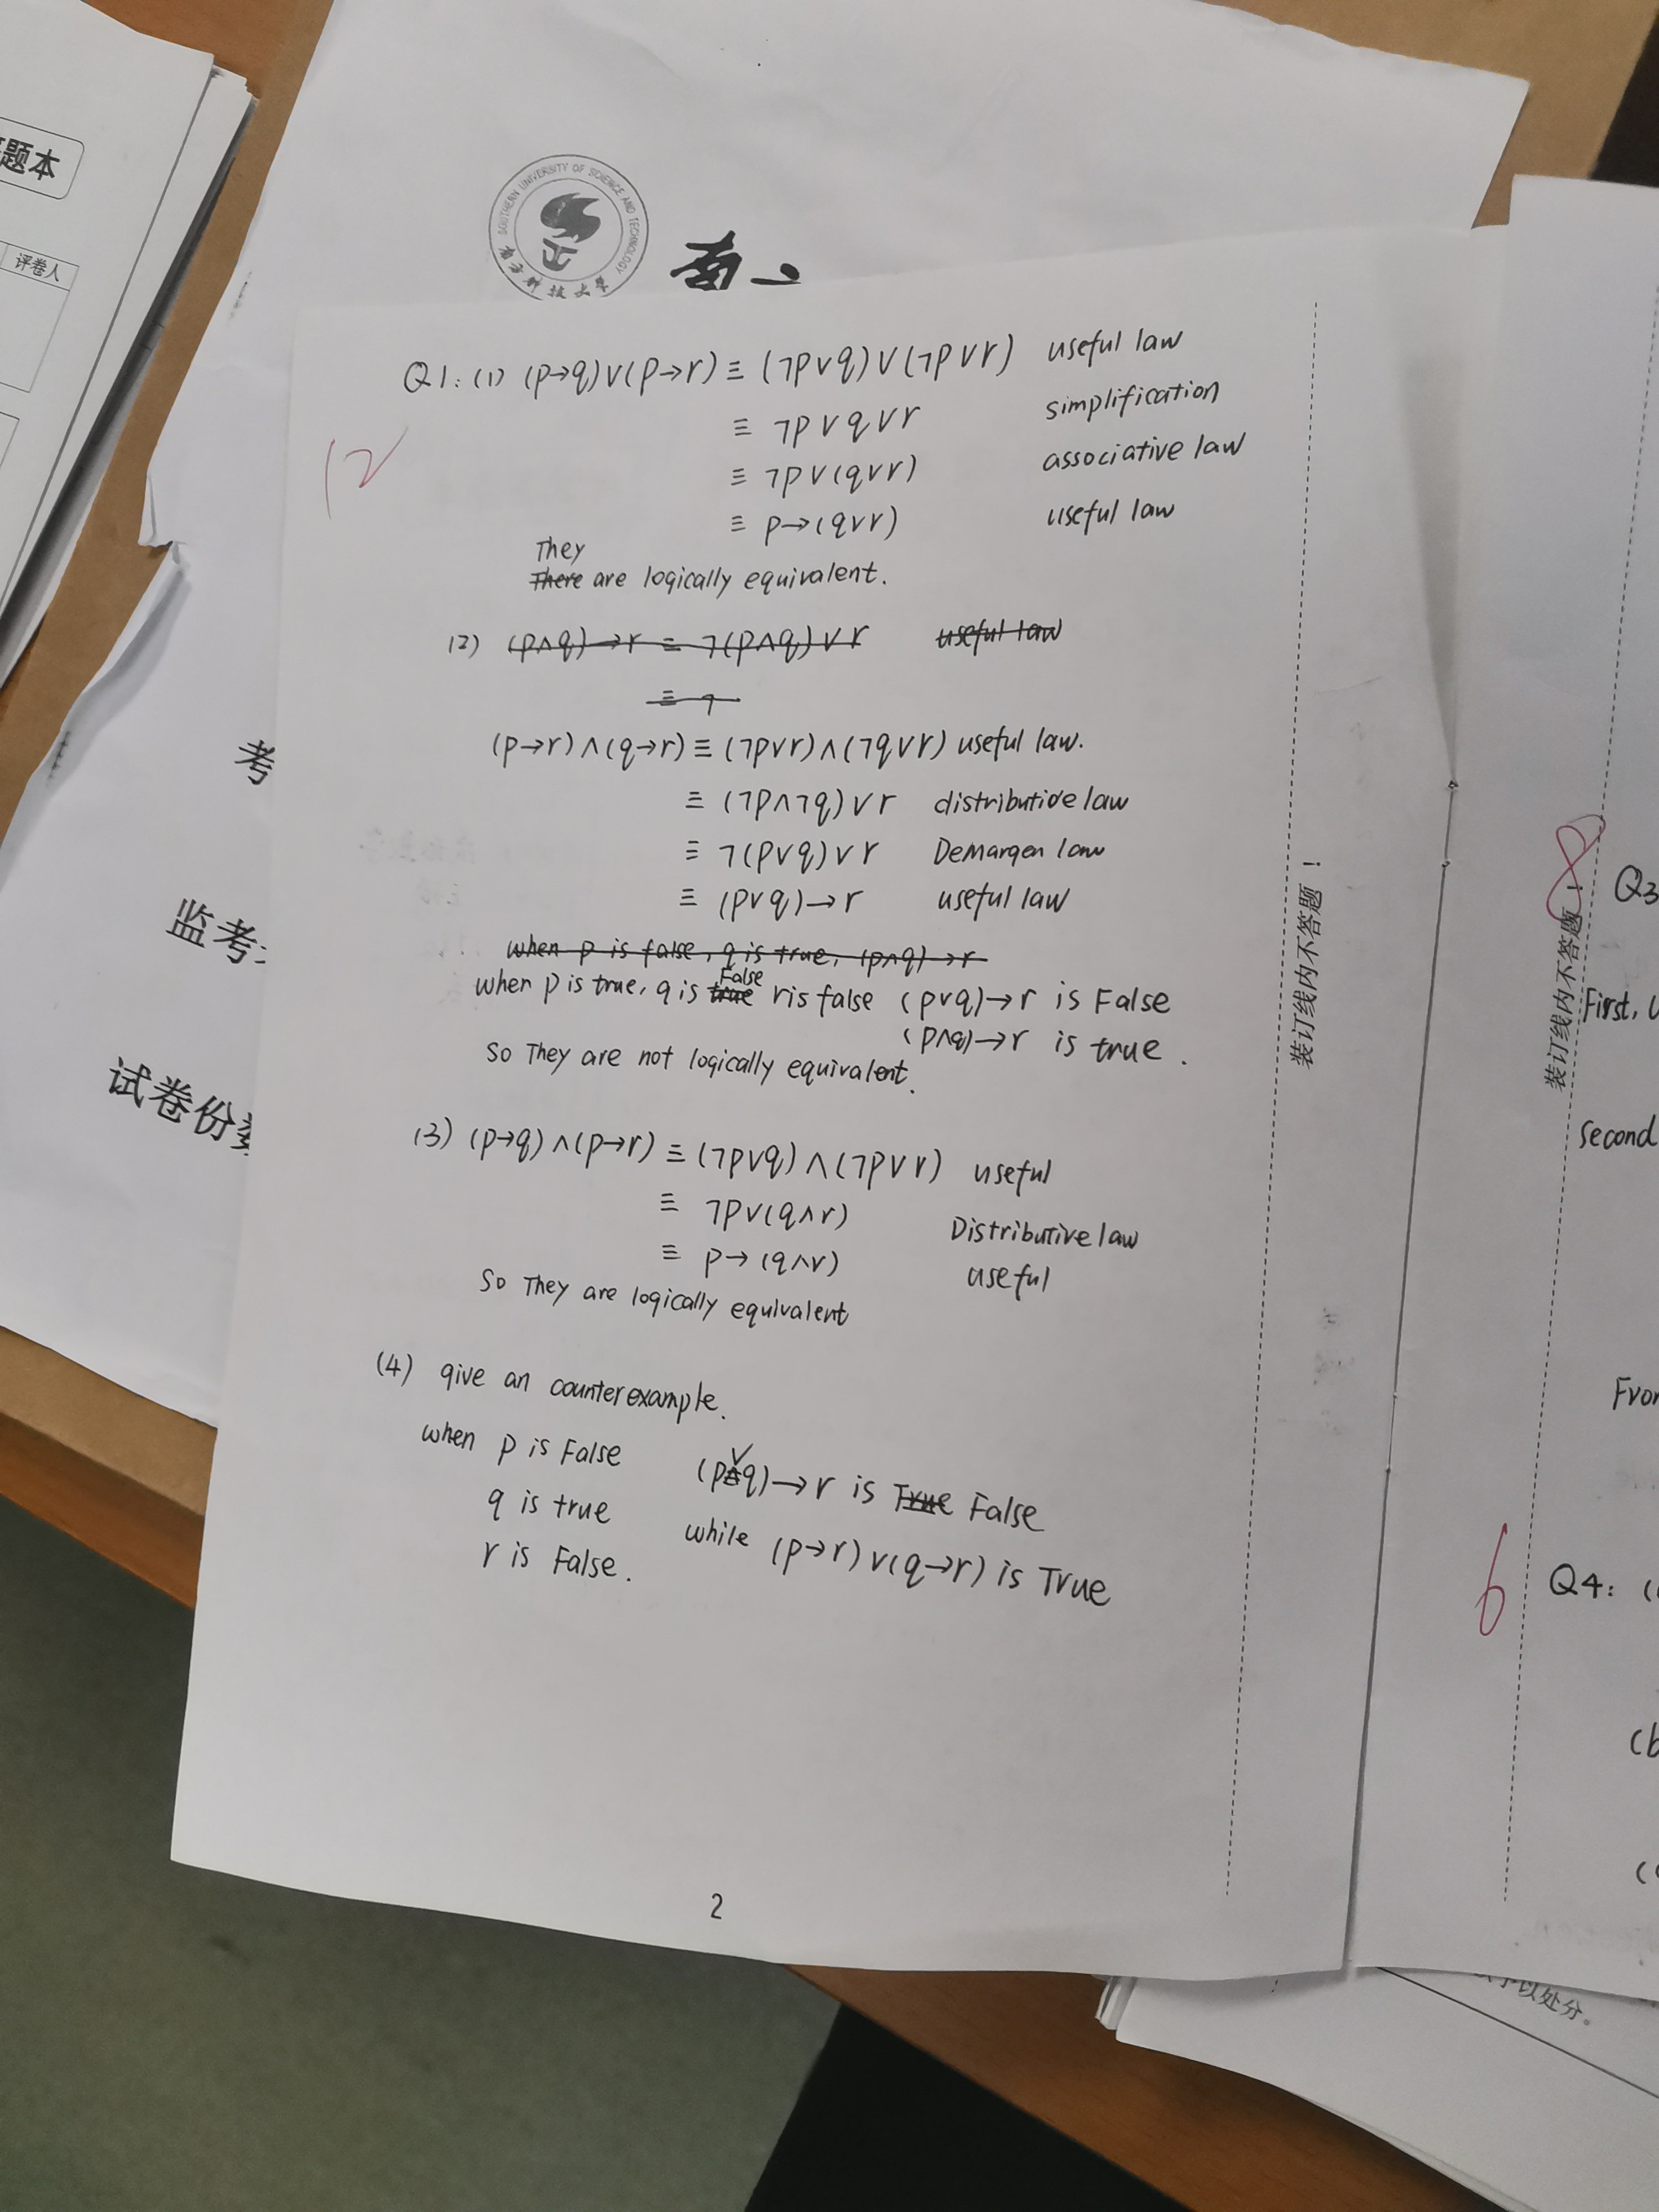 题本
评卷人
SOUTHERN UNIVERSITY OF SCIENCE AND TECHNOLOGY
科技大学
南
考
监考
试卷份
12
Q1: (1) (p→q)∨(p→r) ≡ (¬p∨q)∨(¬p∨r) useful law
≡ ¬p∨q∨r simplification
≡ ¬p∨(q∨r) associative law
≡ p→(q∨r) useful law
They
There are logically equivalent.
(2) (p∧q)→r ≡ ¬(p∧q)∨r useful law
≡ ¬
(p→r)∧(q→r) ≡ (¬p∨r)∧(¬q∨r) useful law.
≡ (¬p∧¬q)∨r distributive law
≡ ¬(p∨q)∨r DeMargen law
≡ (p∨q)→r useful law
when p is false, q is true, (p∧q)→r
False
when p is true, q is true r is false (p∨q)→r is False
(p∧q)→r is true.
So They are not logically equivalent.
(3) (p→q)∧(p→r) ≡ (¬p∨q)∧(¬p∨r) useful
≡ ¬p∨(q∧r) Distributive law
≡ p→(q∧r) useful
So They are logically equivalent
(4) give an counterexample.
when p is False (p∨q)→r is True False
q is true while (p→r)∨(q→r) is True
r is False.
2
装订线内不答题！
8
Q3
装订线内不答题！
First,
second
6
Q4:
予以处分。